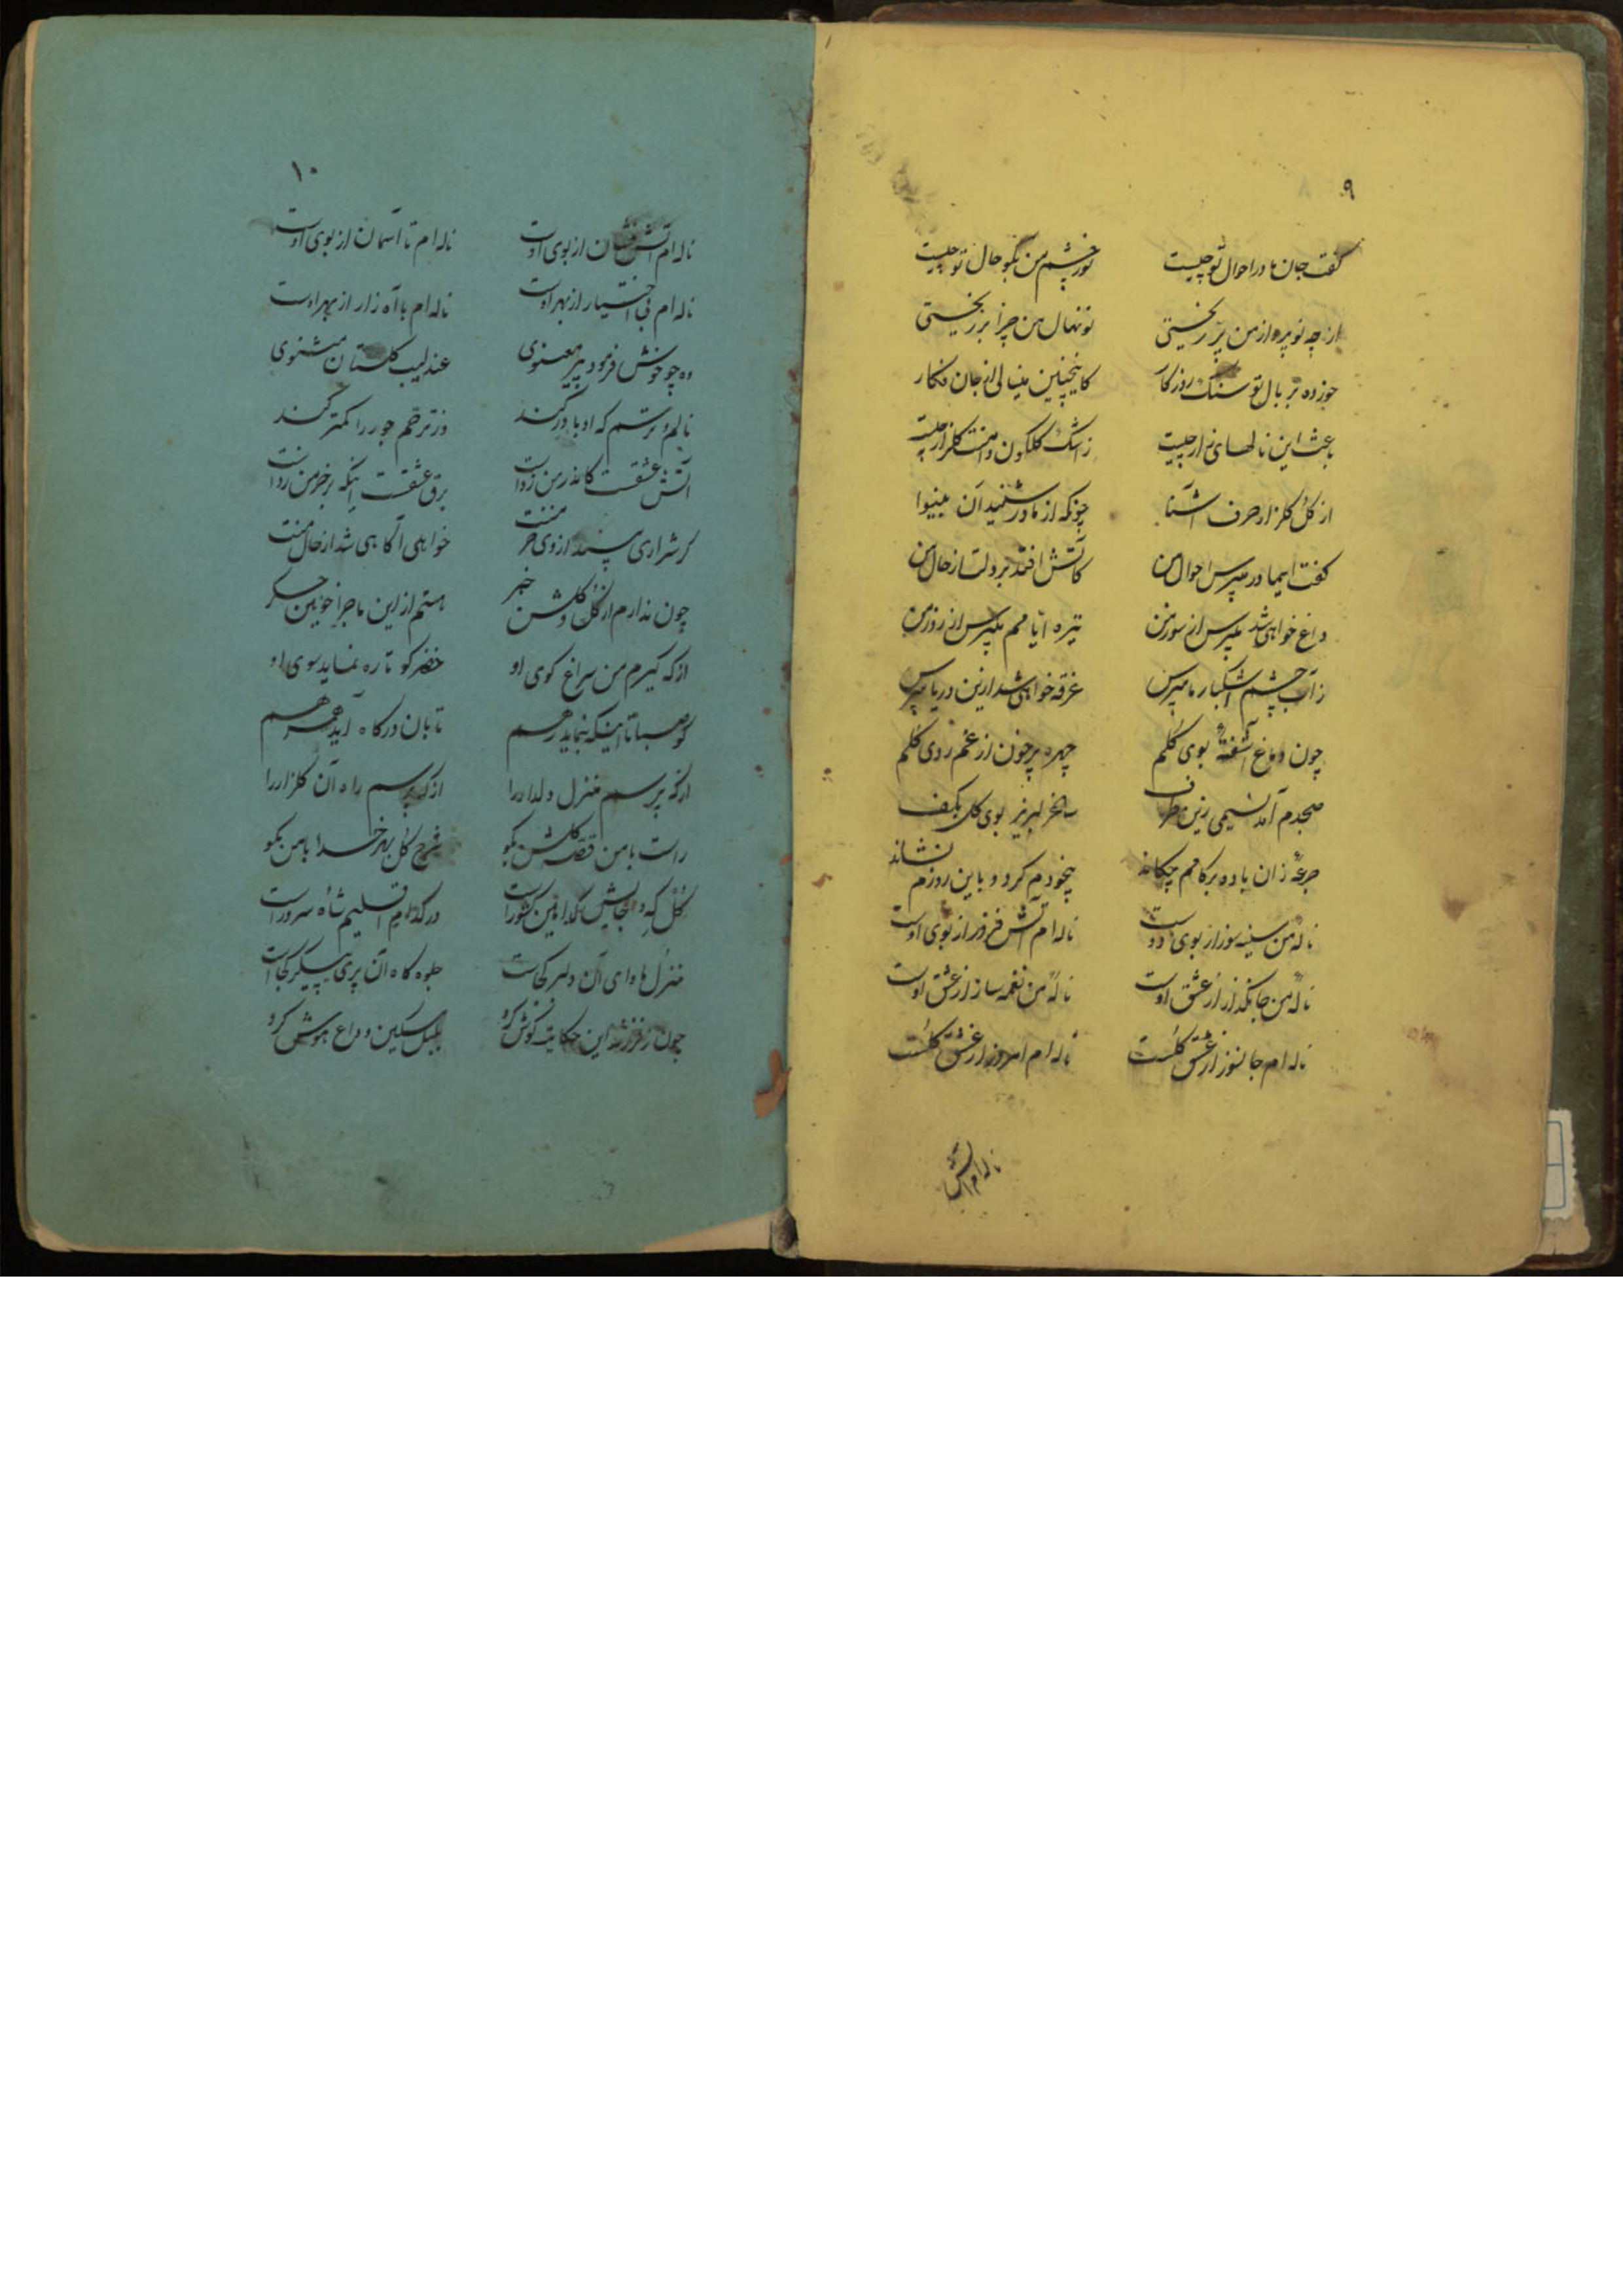 ۹
گفت جان مادر احوال تو چیست نور چشم من بگو حال تو چیست
از چه نو پرواز من پر ریختی نونهال من چرا بر ریختی
خورده بر بال تو سنگ روزگار کاینچنین مینالی از جان فکار
باعث این نالهای زار چیست ز اشک گلگون دامنت گلزار چیست
از گل گلزار حرف آشنا چونکه از مادر شنید آن بینوا
گفت ایمادر مپرس احوال من کآتش افتد بر دلت از حال من
داغ خواهی شد مپرس از سوز من تیره ایامم مپرس از روز من
ز آب چشم اشکبار ما مپرس غرقه خواهی شد ازین دریا مپرس
چون دماغ آشفتهٔ بوی گلم چهره پرخون از غم روی گلم
صبحدم آمد نسیمی زین طرف ساغر لبریز بوی گل بکف
جرعهٔ زان باده بر کامم چکاند بیخودم کرد و باین روزم نشاند
نالهٔ من سینه سوز از بوی اوست ناله ام آتش فروز از بوی اوست
نالهٔ من جانگداز از عشق اوست نالهٔ من نغمه ساز از عشق اوست
ناله ام جانسوز از عشق گلست ناله ام امروز از عشق گلست
ناله ام آتش
۱۰
ناله ام آتش فشان از بوی اوست ناله ام تا آسمان از بوی اوست
ناله ام بی اختیار از بهر اوست ناله ام با آه زار از بهر اوست
وه چو خوش فرمود پیر معنوی عندلیب گلستان مثنوی
نالم و ترسم که او باور کند وز ترحم جور را کمتر کند
آتش عشقست کاندر من زدست برق عشقست اینکه بر خرمن زدست
گر شراری از وی خرمنت خواهی آگاهی شد از حال منت
چون ندارم از گل و گلشن خبر هستم از این ماجرا خونین جگر
از که گیرم من سراغ کوی او خضر کو تا ره نماید سوی او
کو صبا تا اینکه بنماید رهم تا بان درگاه آید همرهم
از که پرسم منزل دلدار را از که پرسم راه آن گلزار را
راست با من قصه گلشن بگو شرح گل بهر خدا با من بگو
گل که کشور است در کدام اقلیم شاه سرور است
منزل ماوای آن دلبر کجاست جلوه گاه آن پری پیکر کجاست
چون ز فرزند این حکایت گوش کرد بلبل مسکین وداع هوش کرد